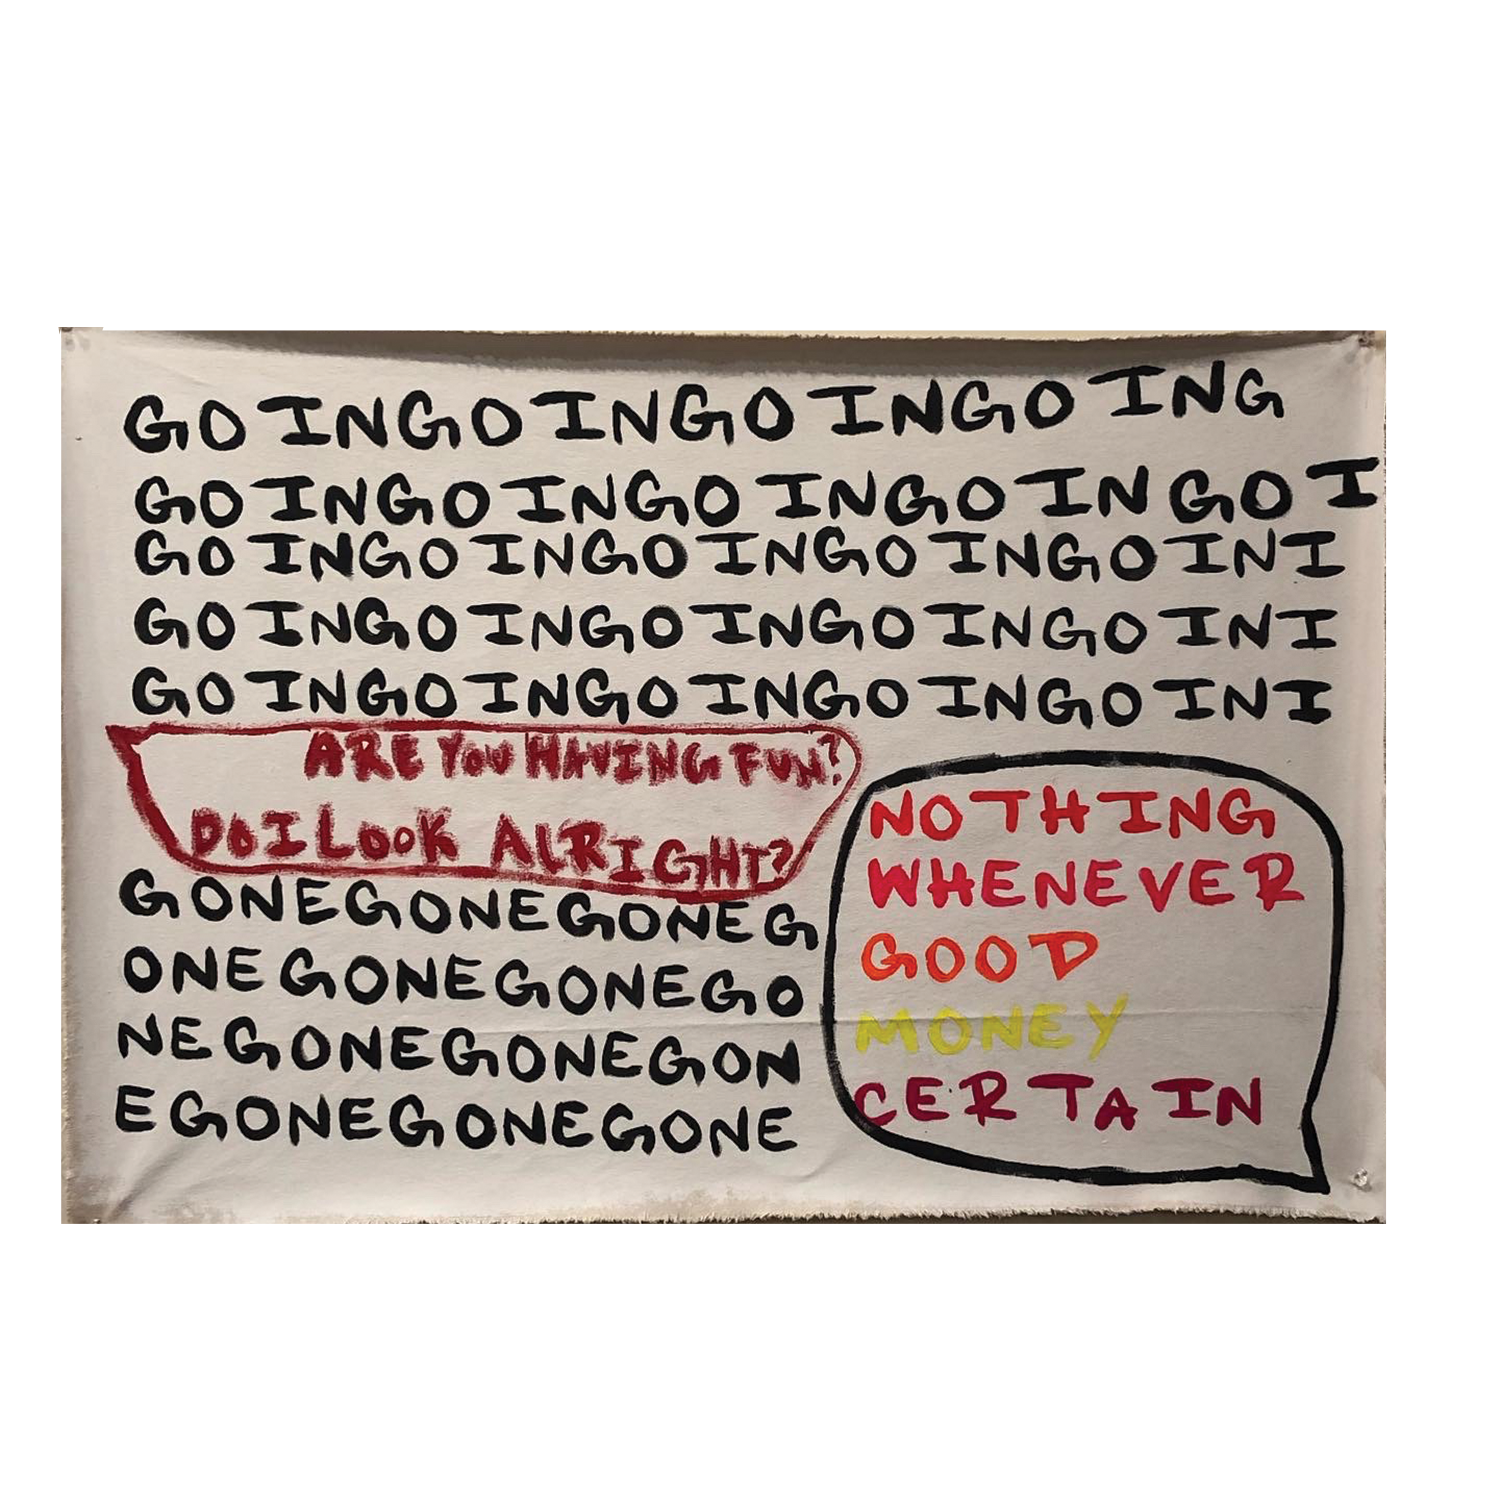 GOINGOINGOINGOING
GOINGOINGOINGOINGOI
GOINGOINGOINGOINGOINI
GOINGOINGOINGOINGOINI
GOINGOINGOINGOINGOINI
ARE YOU HAVING FUN?
DO I LOOK ALRIGHT?
GONEGONEGONEG
ONEGONEGONEGO
NEGONEGONEGON
EGONEGONEGONE
NOTHING
WHENEVER
GOOD
MONEY
CERTAIN